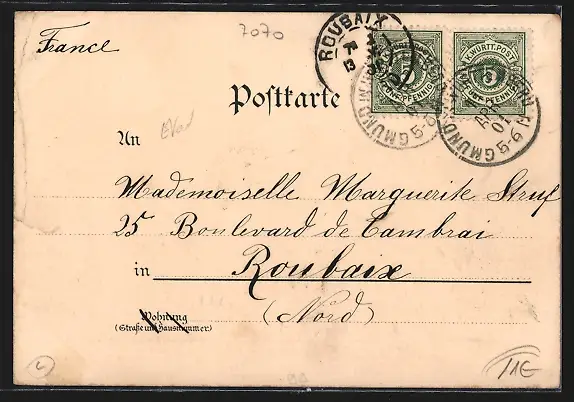 France
7070
ROUBAIX
K.WÜRTT.POST
5
FÜNF PFENNIG
K.WÜRTT.POST
5
FÜNF PFENNIG
GMUND
5-6
GMUND
APR
01
5-6 N
Postkarte
An
Mademoiselle Marguerite Struf
25 Boulevard de Cambrai
in Roubaix
(Nord)
Wohnung
(Straße und Hausnummer)
T1E